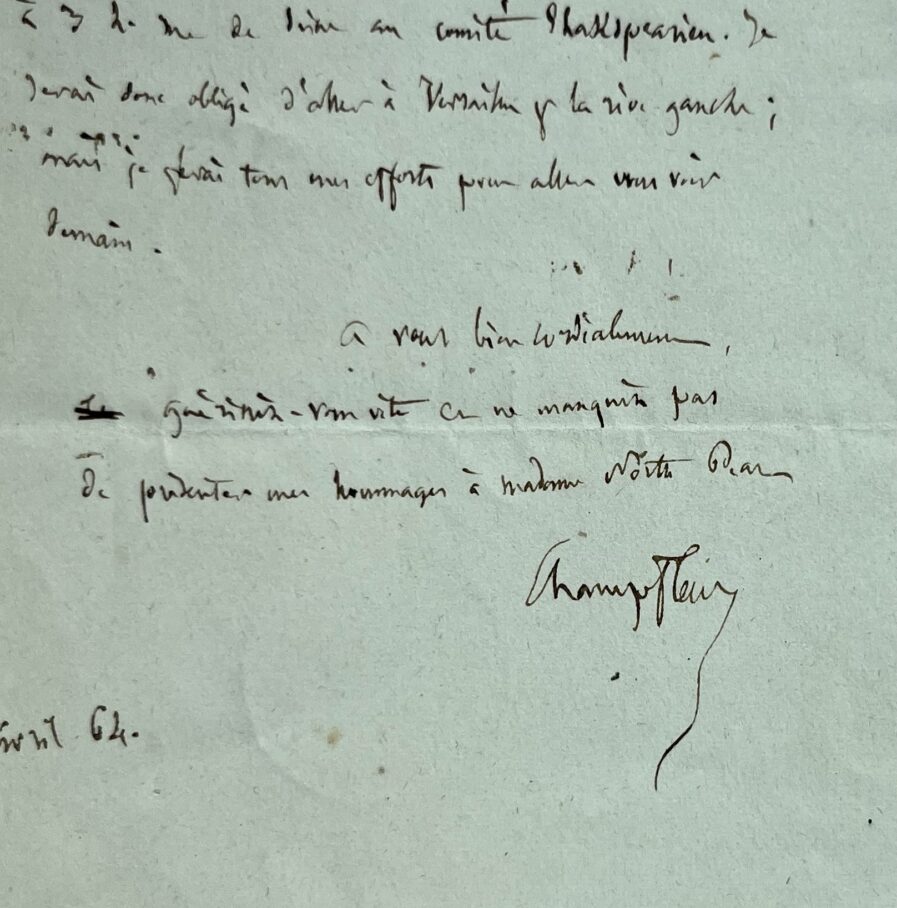 à 3 h. me de dine au comité Shakspearien. Je
serai donc obligé d'aller à Versailles p la rive gauche ;
mais je ferai tous mes efforts pour aller vous voir
demain.
à vous bien cordialement,
guérissez-vous vite et ne manquez pas
de présenter mes hommages à madame North Peat
Champfleury
avril 64.